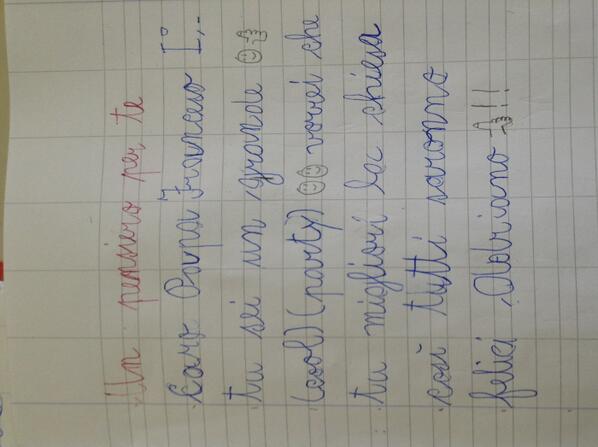 Un pensiero per te
Caro Papa Francesco I,..
tu sei un grande
(cool) (party) vorrei che
tu migliori la chiesa
così tutti saranno
felici Adriano !!!